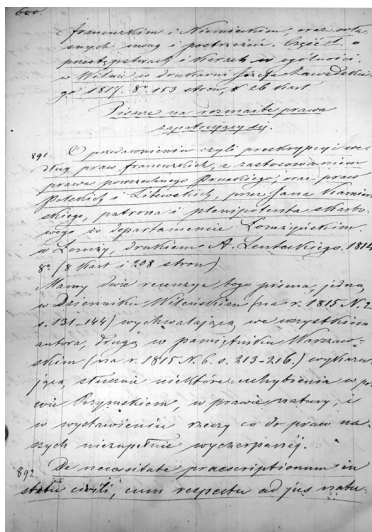 600.
z francuzkim i Niemieckim, oraz włas-
snych uwag i postrzeżeń. Część I. o
przestępstwach i karach w ogólności.
w Wilnie w drukarni Józefa Zawadzkie-
go 1817. 8° 183 stron, i 26 kart
Pisma na rozmaite prawa
zapatrujący się.
891. O przedawnieniu czyli preskrypcyi we-
dług praw francuzkich, z zastosowaniem
prawa powszechnego Pruskiego, oraz praw
Polskich i Litewskich, przez Jana Kamiń-
skiego, patrona i plenipotenta skarbo-
wego w departamencie Łomżyńskim.
w Łomży, drukiem A. 1814
8° (8 kart i 208 stron)
Mamy dwie recenzye tego pisma, jedną
w Dzienniku Wileńskim (na r. 1815 N. 2
s. 131-144) wychwalającą we wszystkiém
autora, drugą w pamiętniku Warszaw-
skim (na r. 1815 N. 6. s. 213-216.) wykazu-
jącą, słusznie niektóre uchybienia w pra-
wie Rzymskiem, w prawie natury, i
w wystawieniu rzeczy co do praw na-
szych niezupełnie wyczerpanéj.
892. De necessitate praescriptionum in
statu civili, cum respectu ad jus natu-